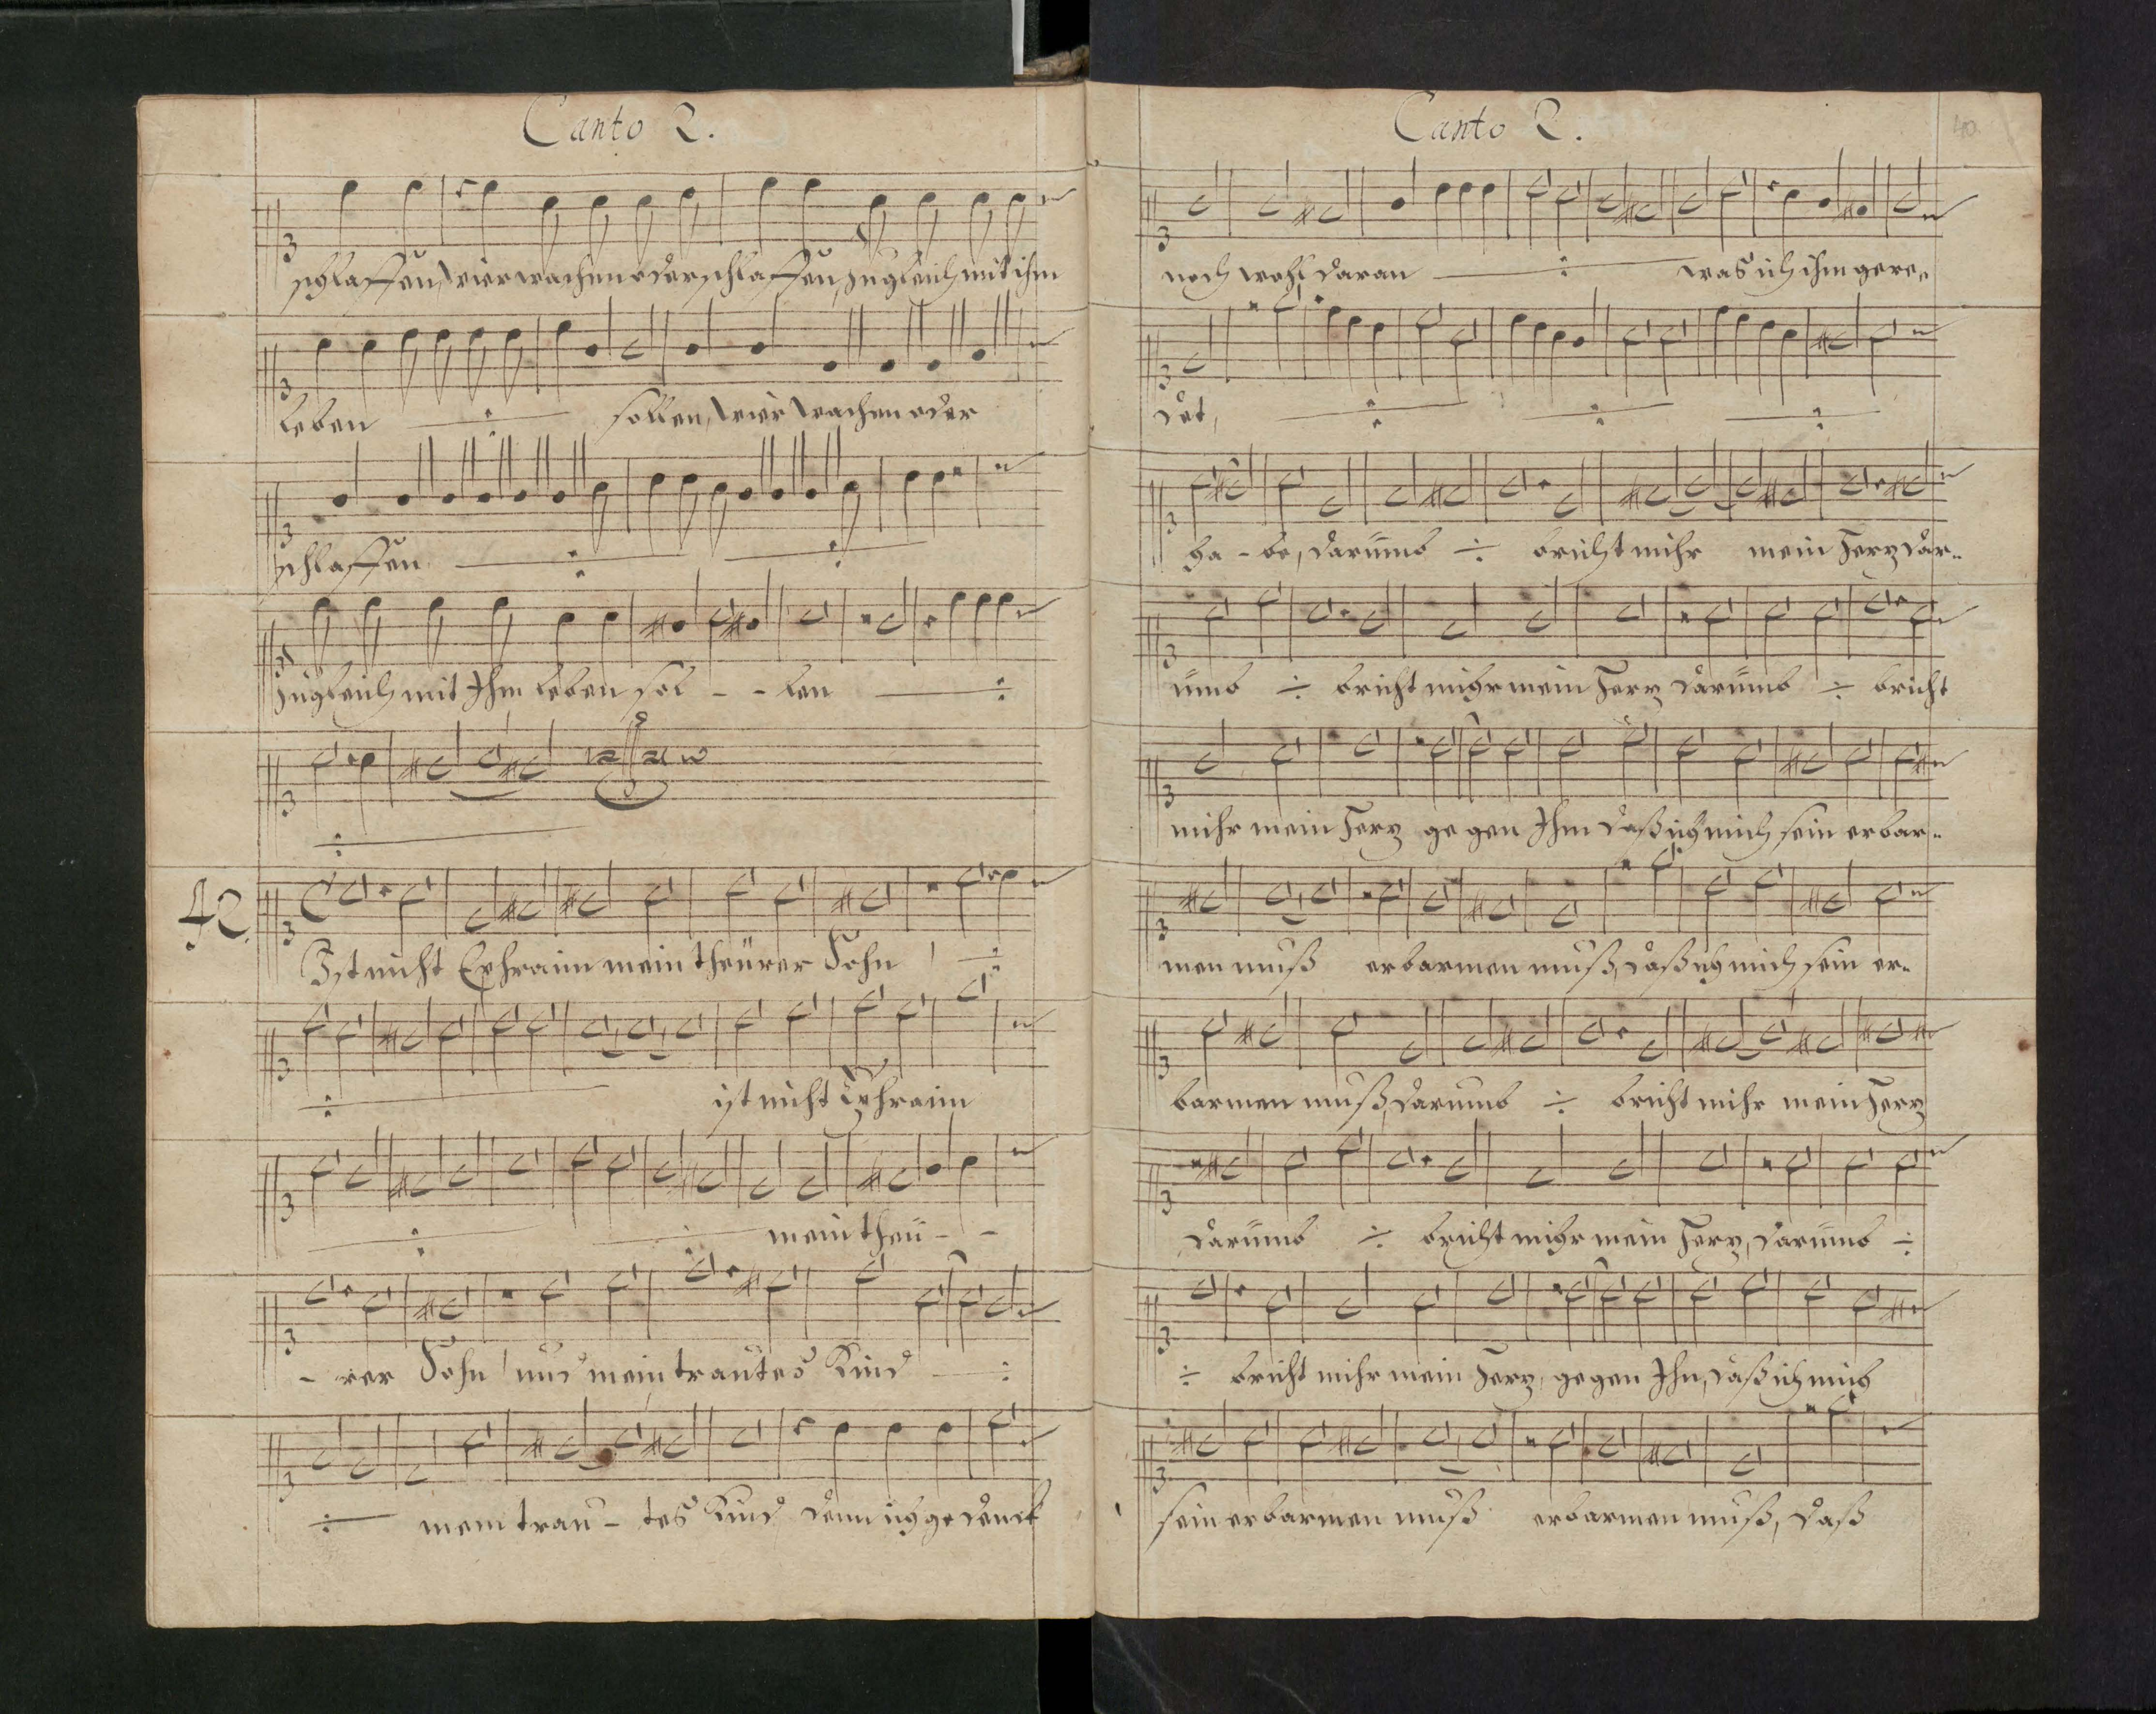 Canto 2.
schlaffen, wier wachen oder schlaffen, zugleich mit ihm
leben ÷ sollen, wier wachen oder
schlaffen ÷ ÷
zugleich mit Ihm leben sol - - len ÷
÷
42.
Ist nicht Ephraim mein theürer Sohn ÷
÷ ist nicht Ephraim
÷ ÷ mein theü - -
- rer Sohn und mein trautes Kind ÷
÷ mein trau - tes Kind denn ich gedenck
Canto 2. 40.
noch wohl daran ÷ was ich ihm gere„
det, ÷ ÷ ÷
ha - be, darümb ÷ bricht mihr mein Herz dar„
ümb ÷ bricht mihr mein Herz darümb ÷ bricht
mihr mein Herz gegen Ihm daß ich mich sein erbar„
men muß erbarmen muß, daß ich mich sein er„
barmen muß, darumb ÷ bricht mihr mein Herz
darümb ÷ bricht mihr mein Herz, darümb ÷
÷ bricht mihr mein Herz, gegen Ihn, daß ich mich
sein erbarmen muß erbarmen muß, daß